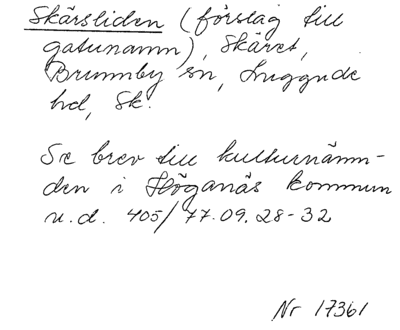 Skärsliden (förslag till
gatunamn), Skäret,
Brunnby sn, Luggude
hd, Sk.
Se brev till kulturnämn-
den i Höganäs kommun
u.d. 405/77.09.28-32
Nr 17361